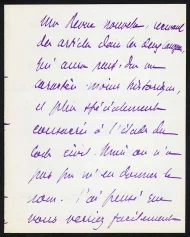 une Revue nouvelle, recevant
des articles dans les deux langues,
qui aura peut-être un
caractère moins historique,
et plus spécialement
consacrée à l'étude du
Code civil. Mais on n'a
pas pu m'en donner le
nom. J'ai pensé que
vous verriez facilement